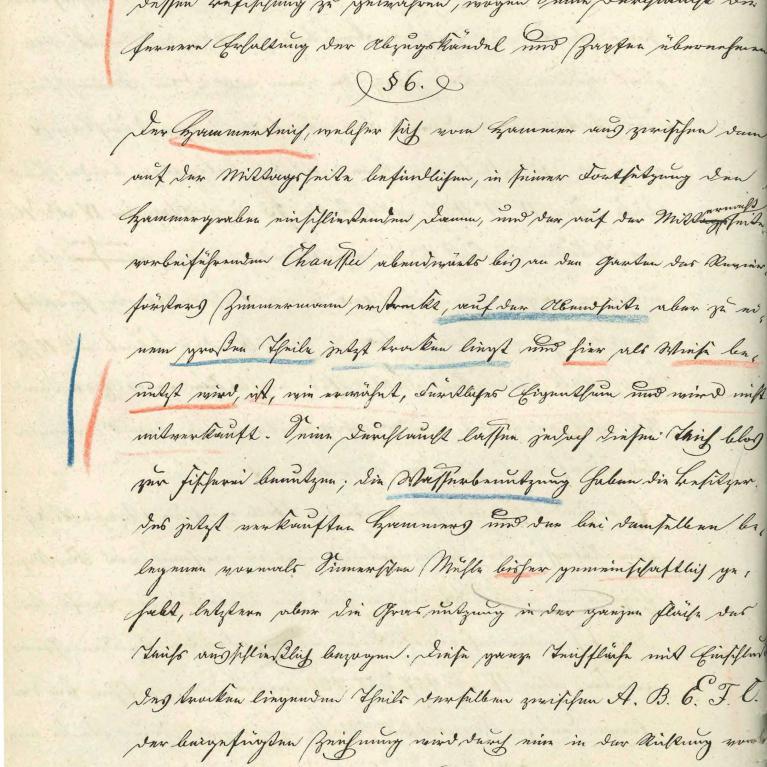 dessen Befischung zu gewähren, wogen Seine Durchlaucht die
fernere Erhaltung der Abzugskändel und Zapfen übernehmen
§ 6.
Der Hammerteich, welcher sich vom Hammer aus zwischen dem
auf der Mittagsseite befindlichen, in seiner Fortsetzung den
Hammergraben einschließenden Damm, und der auf der Mitternachtseite
vorbeiführenden Chaussee abendwärts bis an den Garten des Revier-
försters Zimmermann erstreckt, auf der Abendseite aber zu ei-
nem großen Theile jetzt trocken liegt und hier als Wiese be-
nutzt wird, ist, wie erwähnt, Fürstliches Eigenthum und wird nicht
mitverkauft. Seine Durchlaucht lassen jedoch diesen Teich blos
zur Fischerei benutzen; die Wasserbenutzung haben die Besitzer
des jetzt verkauften Hammers und der bei demselben be-
legenen vormals Mühle bisher gemeinschaftlich ge-
habt, letztere aber die Grasnutzung in der ganzen Fläche des
Teichs ausschließlich bezogen. Diese ganze Teichfläche mit Einschluß
des trocken liegenden Theils derselben zwischen A. B. E. F. C.
der beigefügten Zeichnung wird durch eine in der Richtung von